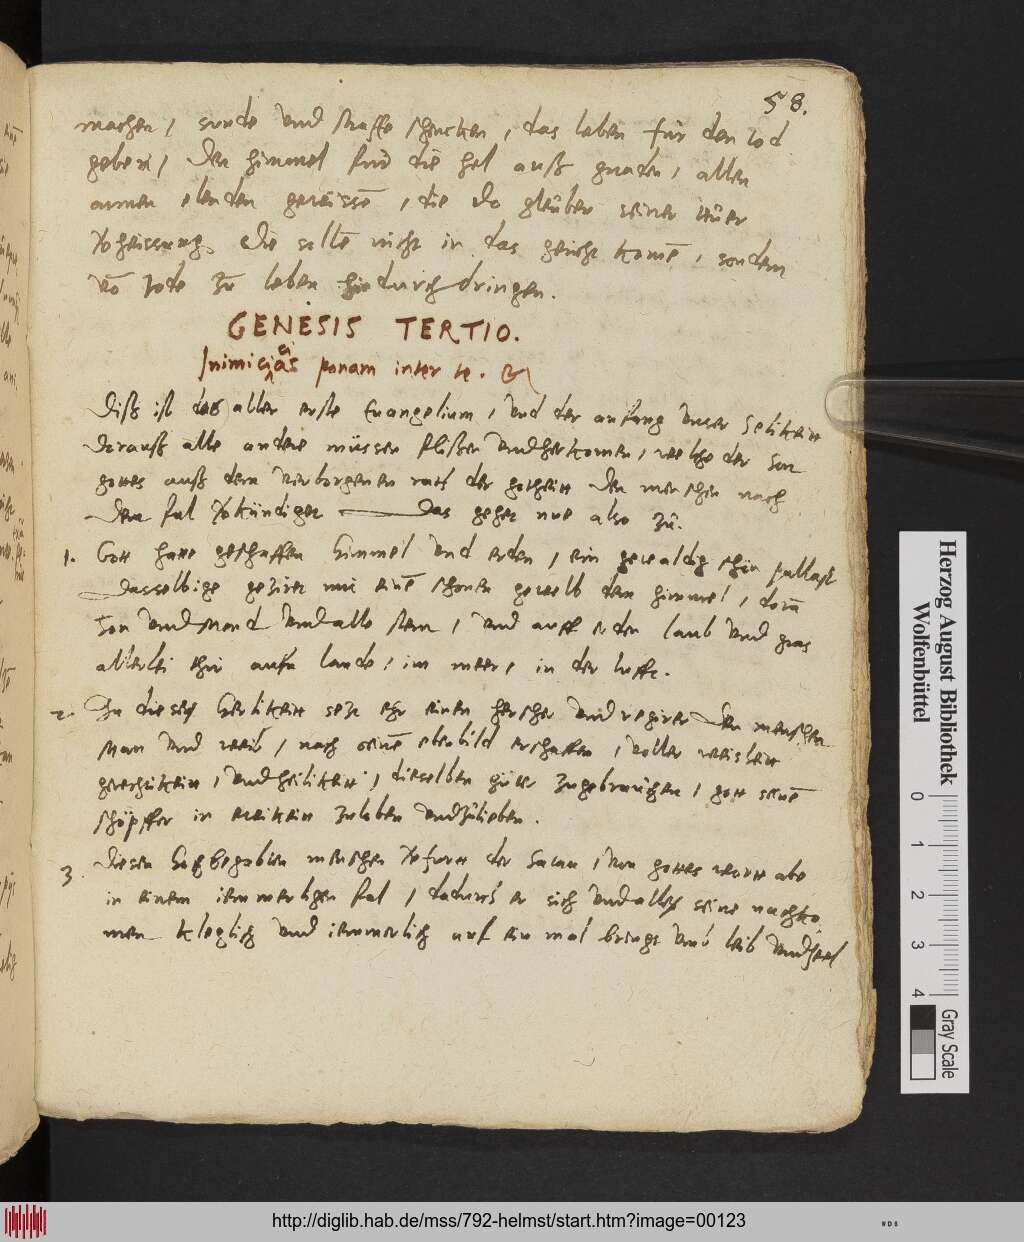 58.
machen / sunde und straffe schencken, das leben für den tod
geben / den himmel für die hel auß gnaden / allen
armen elenden gewissē, die do gleuben seiner
Die sollē nicht in das gericht komē, sondern
vō tode zū leben hindurch dringen.
GENESIS TERTIO.
Inimicicias ponam inter te. &
Diß ist das aller erste Euangelium, und der anfang unser selikeitt
Darauß alle andere müssen flißen und herkomen, welche der son
gottes auß dem verborgenen rath der gotheitt den menschen nach
dem fal Das gehet nue also zū.
1. Gott hatt geschaffen himmel und erden, ein gewaldig schon pallast
Dasselbige geziret mit einē schonen gewelb dem himmel, dorā
Son und mond und alle stern, und auff erden laub und gras
allerlei thir aufm lande, im meer, in der lufft.
2. In diese herlikeitt setzt ehr einen herscher und regirer den menschen
Man und weib, nach seinē ebenbild erschaffen, voller weisheitt
gerechtikeitt, und heilikeitt, dieselben gütter zugebrauchen, gott seinē
schöpffer in ewikeitt zuloben und zūlieben.
3. Diesen begabten menschen der Satan, von gottes wortt abe
in einem iemmerlichen fal, dadurch er sich und alle seine nachko
men kleglich und iemmerlich auf ein mal bringt umb leib und seel
Herzog August Bibliothek
Wolfenbüttel
0 1 2 3 4
Gray Scale
http://diglib.hab.de/mss/792-helmst/start.htm?image=00123